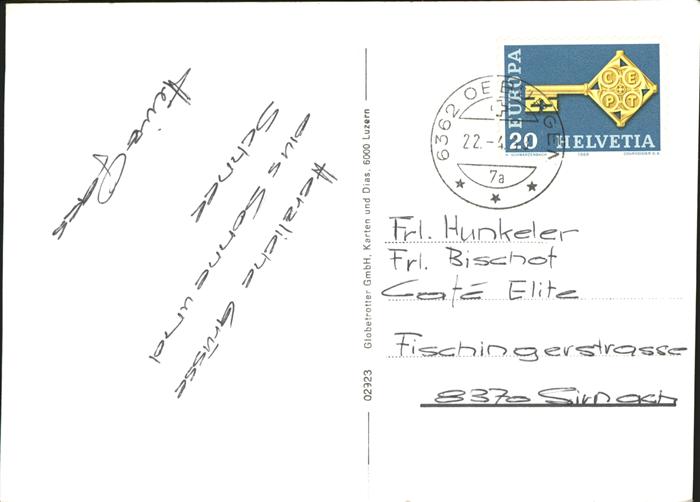 Herzliche Grüsse
aus Sonne und
Schnee
Heinz
EUROPA
CEPT
20 HELVETIA
H. SCHWARZENBACH 1968 COURVOISIER S.A.
6362
22.-4.
7a
Frl. Hunkeler
Frl. Bischof
Café Elite
Fischingerstrasse
8370 Sirnach
02923 Globetrotter GmbH, Karten und Dias, 6000 Luzern